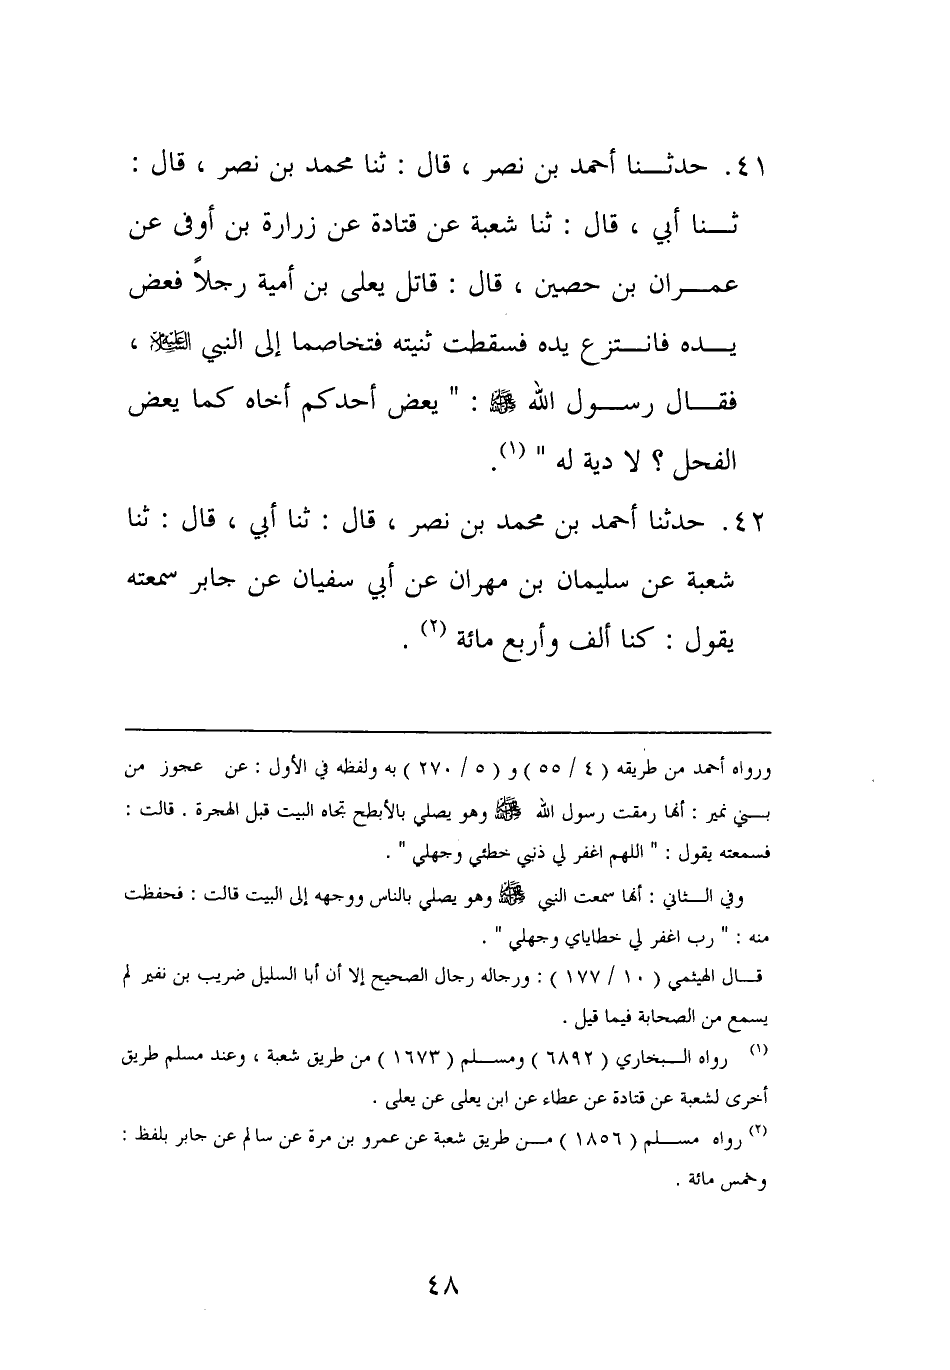 ٤١. حدثنا أحمد بن نصر ، قال : ثنا محمد بن نصر ، قال :
ثنا أبي ، قال : ثنا شعبة عن قتادة عن زرارة بن أوفى عن
عمران بن حصين ، قال : قاتل يعلى بن أمية رجلاً فعض
يده فانتزع يده فسقطت ثنيته فتخاصما إلى النبي ﷺ ،
فقال رسول الله ﷺ : " يعض أحدكم أخاه كما يعض
الفحل ؟ لا دية له " (١).
٤٢. حدثنا أحمد بن محمد بن نصر ، قال : ثنا أبي ، قال : ثنا
شعبة عن سليمان بن مهران عن أبي سفيان عن جابر سمعته
يقول : كنا ألف وأربع مائة (٢) .
ورواه أحمد من طريقه ( ٤ / ٥٥ ) و ( ٥ / ٢٧٠ ) به ولفظه في الأول : عن عجوز من
بني نمير : أنها رمقت رسول الله ﷺ وهو يصلي بالأبطح تجاه البيت قبل الهجرة . قالت :
فسمعته يقول : " اللهم اغفر لي ذنبي خطئي وجهلي " .
وفي الثاني : أنها سمعت النبي ﷺ وهو يصلي بالناس ووجهه إلى البيت قالت : فحفظت
منه : " رب اغفر لي خطاياي وجهلي " .
قال الهيثمي ( ١٠ / ١٧٧ ) : ورجاله رجال الصحيح إلا أن أبا السليل ضريب بن نفير لم
يسمع من الصحابة فيما قيل .
(١) رواه البخاري ( ٦٨٩٢ ) ومسلم ( ١٦٧٣ ) من طريق شعبة ، وعند مسلم طريق
أخرى لشعبة عن قتادة عن عطاء عن ابن يعلى عن يعلى .
(٢) رواه مسلم ( ١٨٥٦ ) من طريق شعبة عن عمرو بن مرة عن سالم عن جابر بلفظ :
وخمس مائة .
٤٨